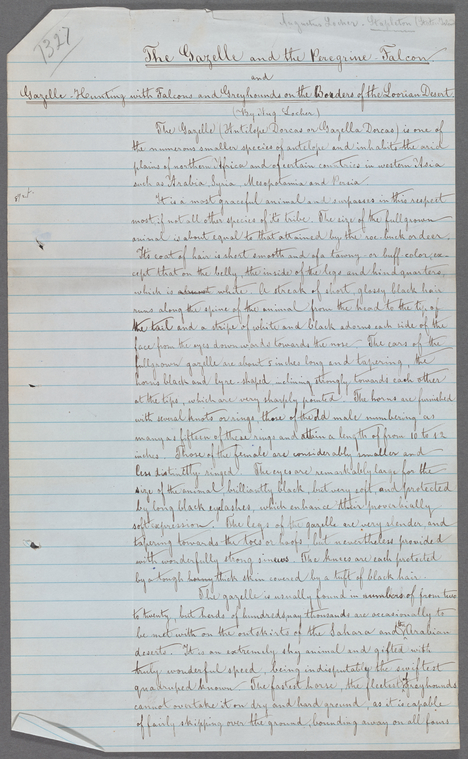 Augustus Locher - Stapleton
1327
The Gazelle and the Peregrine-Falcon
and
Gazelle-Hunting with Falcons and Greyhounds on the Borders of the Loorian Desert.
(By Aug. Locher)
The Gazelle (Antilope Dorcas or Gazella Dorcas) is one of
the numerous smaller species of antelope and inhabits the arid
plains of northern Africa and of certain countries in western Asia
such as Arabia, Syria, Mesopotamia and Persia.
It is a most graceful animal and surpasses in this respect
most if not all other species of its tribe. The size of the fullgrown
animal is about equal to that attained by the roe-buck or deer.
Its coat of hair is short smooth and of a tawny or buff color, ex-
cept that on the belly, the inside of the legs and hindquarters,
which is almost white. A streak of short, glossy black hair
runs along the spine of the animal from the head to the tip of
the tail and a stripe of white and black adorns each side of the
face from the eyes downwards towards the nose. The ears of the
fullgrown gazelle are about 5 inches long and tapering, the
horns black and lyre-shaped inclining strongly towards each other
at the tips, which are very sharply pointed. The horns are furnished
with several knots or rings, those of the old male numbering as
many as fifteen of these rings and attain a length of from 10 to 12
inches. Those of the female are considerably smaller and
less distinctly ringed. The eyes are remarkably large for the
size of the animal, brilliantly black, but very soft, and protected
by long black eyelashes, which enhance their proverbially
soft expression. The legs of the gazelle are very slender, and
tapering towards the toes or hoofs, but nevertheless provided
with wonderfully strong sinews. The knees are each protected
by a tough horny thick skin covered by a tuft of black hair.
The gazelle is usually found in numbers of from two
to twenty, but herds of hundreds, nay thousands are occasionally to
be met with on the outskirts of the Sahara and the Arabian
deserts. It is an extremely shy animal and gifted with
truly wonderful speed, being indisputably the swiftest
quadruped known. The fastest horse, the fleetest greyhounds
cannot overtake it on dry and hard ground, as it is capable
of fairly skipping over the ground, bounding away on all fours